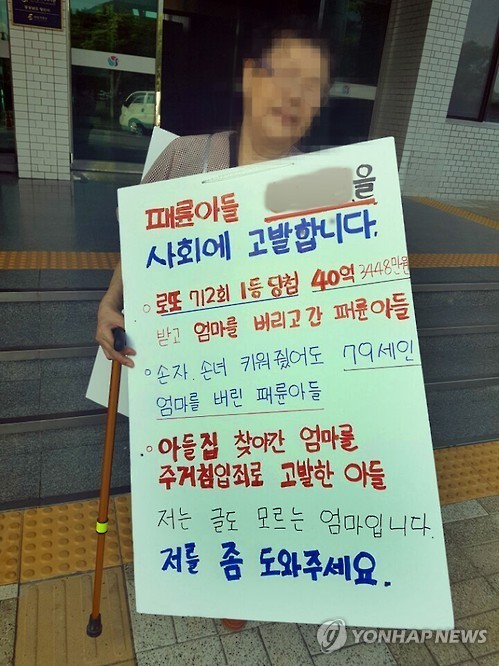 패륜아들 을
사회에 고발합니다.
로또 712회 1등 당첨 40억 3448만원
받고 엄마를 버리고 간 패륜아들
손자. 손녀 키워줬어도 79세인
엄마를 버린 패륜아들
아들집 찾아간 엄마를
주거침입죄로 고발한 아들
저는 글도 모르는 엄마입니다.
저를 좀 도와주세요.
YONHAP NEWS